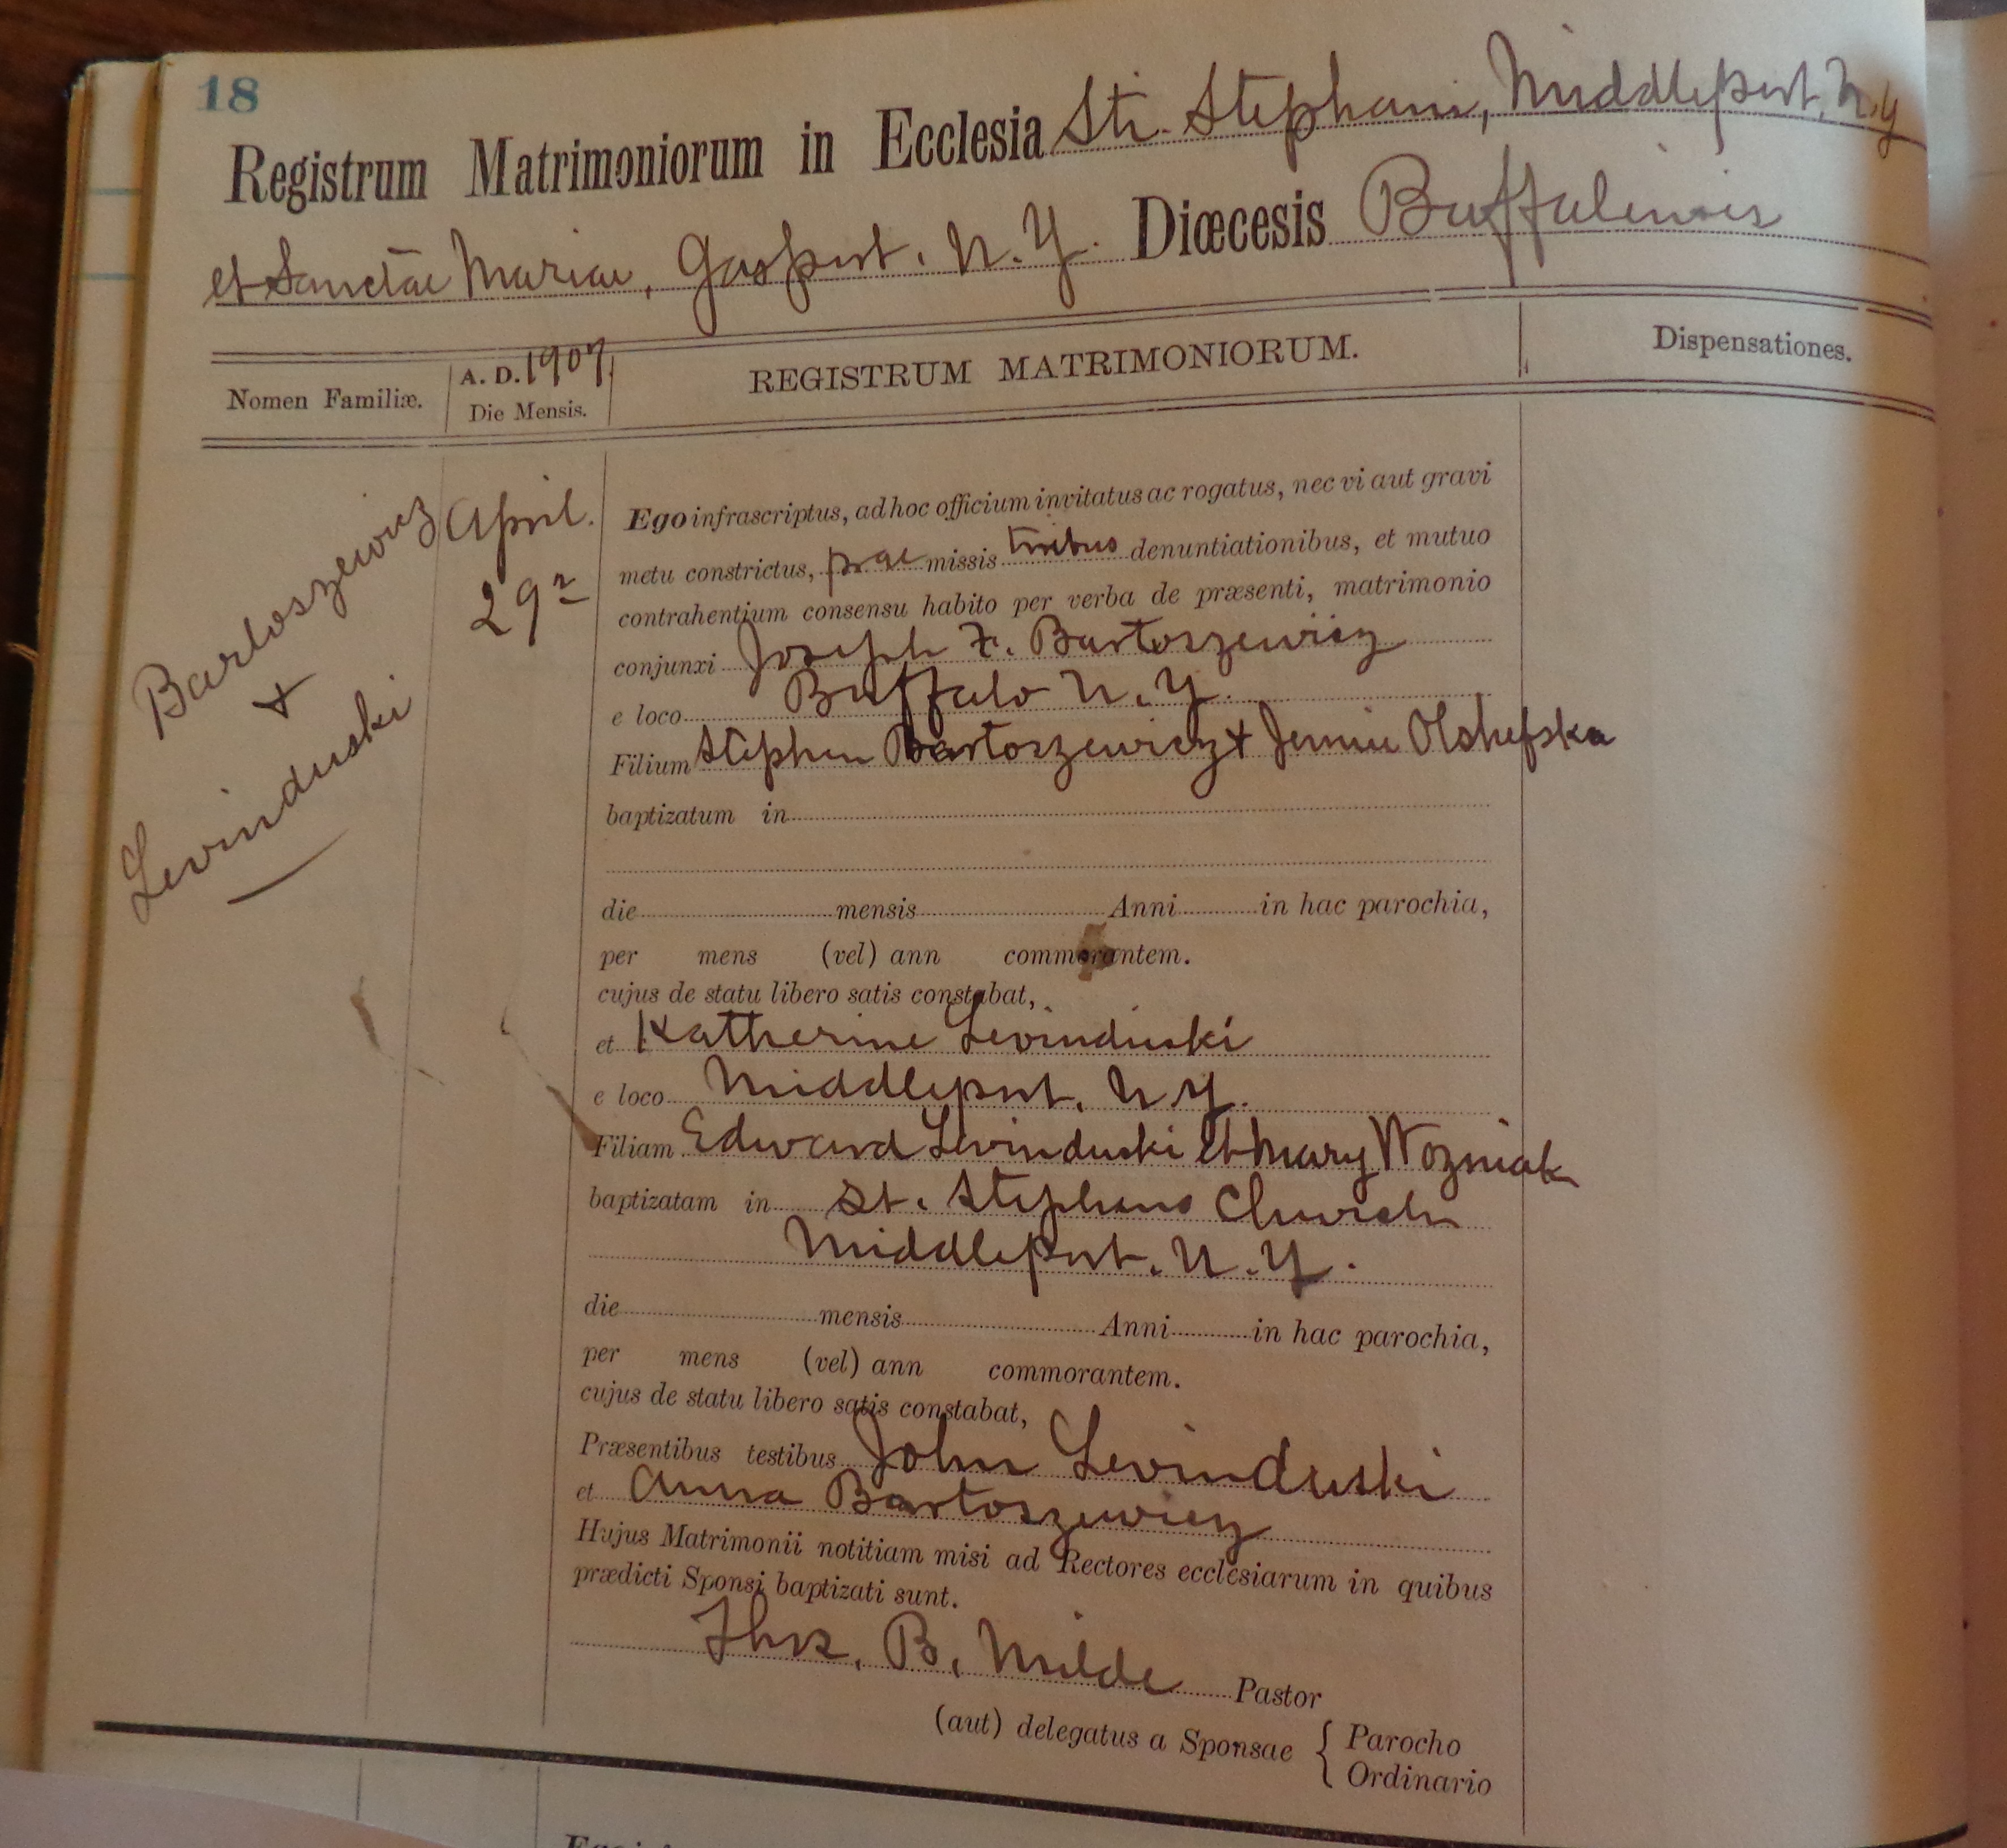 18
Registrum Matrimoniorum in Ecclesia Sti. Stephani, Middleport, N.Y
et Sanctae Mariae, Gasport. N.Y. Diœcesis Buffalensis
Nomen Familiæ.
A. D. 1907.
Die Mensis.
REGISTRUM MATRIMONIORUM.
Dispensationes.
Bartoszewicz
+
Levinduski
April.
29
Ego infrascriptus, ad hoc officium invitatus ac rogatus, nec vi aut gravi
metu constrictus, prae missis tribus denuntiationibus, et mutuo
contrahentium consensu habito per verba de præsenti, matrimonio
conjunxi Joseph F. Bartoszewicz
e loco Buffalo N.Y.
Filium Stephen Bartoszewicz + Jennie Olshefska
baptizatum in
die mensis Anni in hac parochia,
per mens (vel) ann commorantem.
cujus de statu libero satis constabat,
et Katherine Levinduski
e loco Middleport. N.Y.
Filiam Edward Levinduski et Mary Wozniak
baptizatam in St. Stephens Church
Middleport. N.Y.
die mensis Anni in hac parochia,
per mens (vel) ann commorantem.
cujus de statu libero satis constabat,
Præsentibus testibus John Levinduski
et Anna Bartoszewicz
Hujus Matrimonii notitiam misi ad Rectores ecclesiarum in quibus
prædicti Sponsi baptizati sunt.
Thos. B. Milde Pastor
(aut) delegatus a Sponsae { Parocho
Ordinario